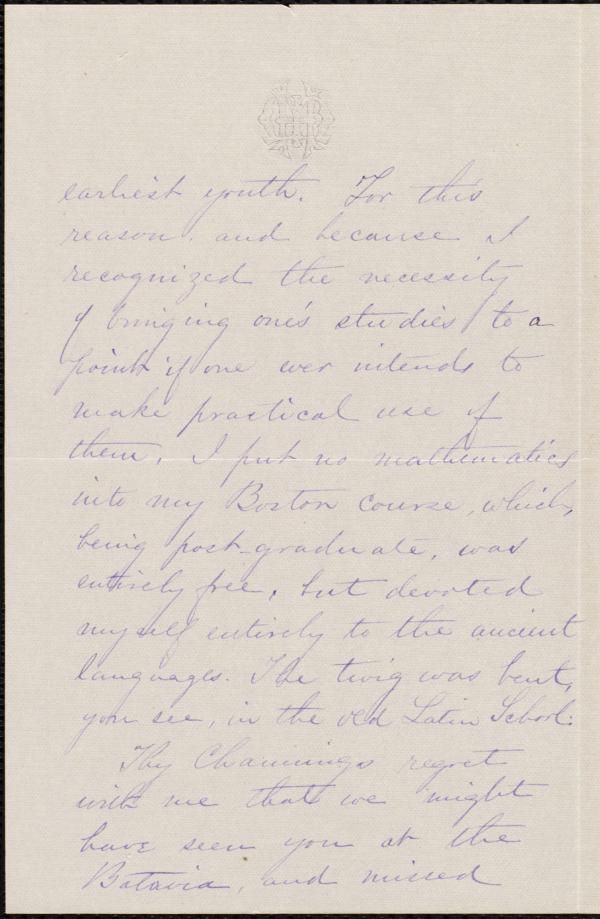 earliest youth. For this
reason, and because I
recognized the necessity
of bringing one's studies to a
point if one ever intends to
make practical use of
them, I put no mathematics
into my Boston course, which,
being post-graduate, was
entirely free, but devoted
myself entirely to the ancient
languages. The twig was bent,
you see, in the old Latin School.
The Channings regret
with me that we might
have seen you at the
Batavia, and missed